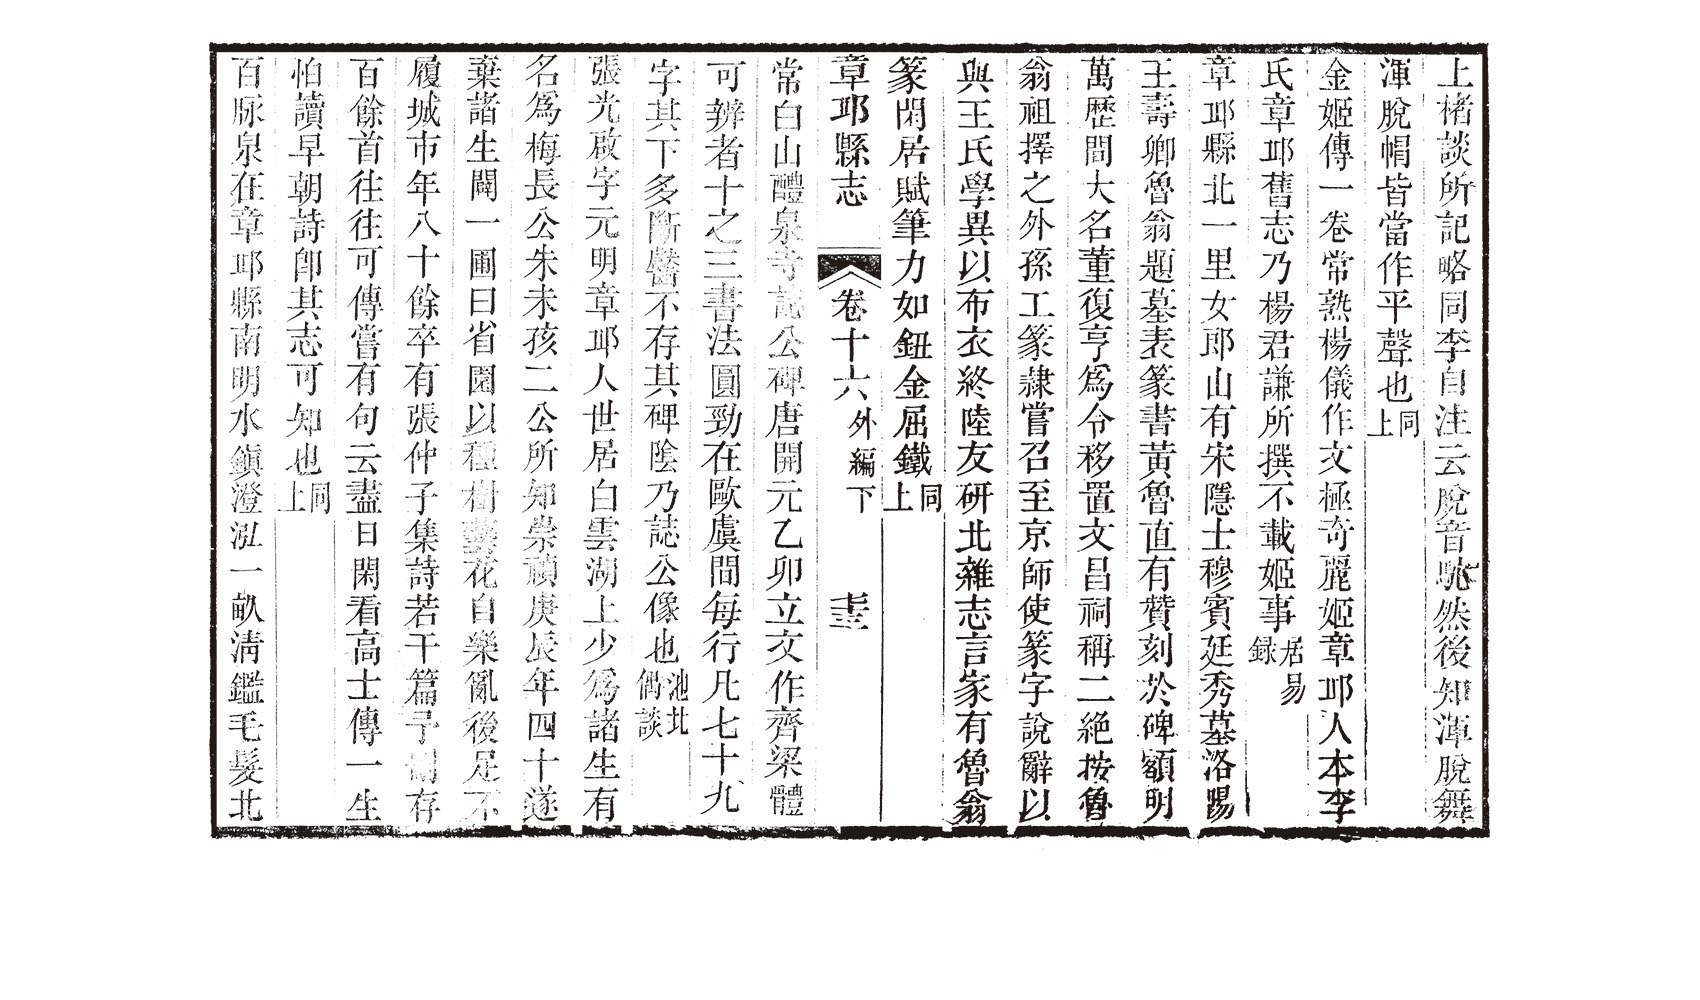 上楮談所記略同李自注云脫音駞然後知渾脫舞
渾脫帽皆當作平聲也同上
金姬傳一卷常熟楊儀作文極奇麗姬章邱人本李
氏章邱舊志乃楊君謙所撰不載姬事居易錄
章邱縣北一里女郎山有宋隱士穆賓廷秀墓洛陽
王壽卿魯翁題墓表篆書黃魯直有贊刻於碑額明
萬歷間大名董復亨爲令移置文昌祠稱二絕按魯
翁祖擇之外孫工篆隷嘗召至京師使篆字說辭以
與王氏學異以布衣終陸友研北雜志言家有魯翁
篆閑居賦筆力如鈕金屈鐵同上
章邱縣志 卷十六外編下 圭
常白山醴泉寺誌公碑唐開元乙卯立文作齊梁體
可辨者十之三書法圓勁在歐虞間每行凡七十九
字其下多斷齾不存其碑陰乃誌公像也池北偶談
張光啟字元明章邱人世居白雲湖上少爲諸生有
名爲梅長公朱未孩二公所知崇禎庚辰年四十遂
棄諸生闢一圃曰省園以種樹藝花自樂亂後足不
履城市年八十餘卒有張仲子集詩若干篇予刪存
百餘首往往可傳嘗有句云盡日閑看高士傳一生
怕讀早朝詩卽其志可知也同上
百脉泉在章邱縣南明水鎭澄泓一畝淸鑑毛髮北